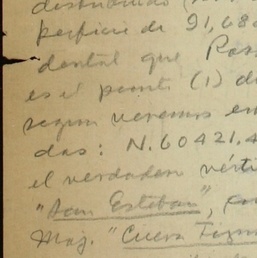 distribuido
perficie de 91,68
dental que Pos
es el punto (1) d
segun veremos en
das: N.60421.4
el verdadero vérti
"San Esteban",
Maj. "Cueva